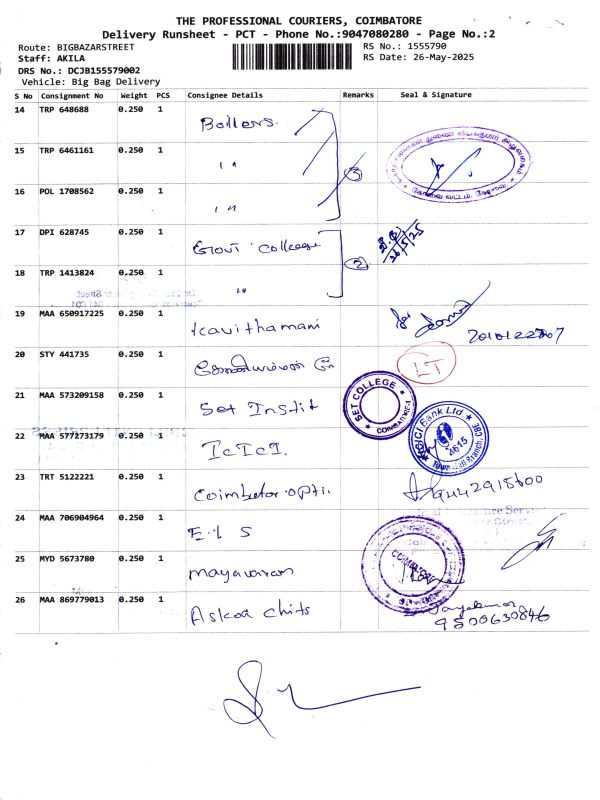 THE PROFESSIONAL COURIERS, COIMBATORE
Delivery Runsheet - PCT - Phone No.:9047080280 - Page No.:2
Route: BIGBAZARSTREET
RS No.: 1555790
Staff: AKILA
RS Date: 26-May-2025
DRS No.: DCJB155579002
Vehicle: Big Bag Delivery
S No Consignment No Weight PCS Consignee Details Remarks Seal & Signature
14 TRP 648688 0.250 1 Boilers.
15 TRP 6461161 0.250 1 " 3
16 POL 1708562 0.250 1 "
17 DPI 628745 0.250 1 Govt college 26/5/25
18 TRP 1413824 0.250 1 " 2
19 MAA 650917225 0.250 1 Kavithamani
20 STY 441735 0.250 1 LT
21 MAA 573209158 0.250 1 Set Instit SET COLLEGE COIMBATORE-1
22 MAA 577273179 0.250 1 ICICI. ICICI Bank Ltd 4615 Town Hall Branch, CBE
23 TRT 5122221 0.250 1 Coimbator opti. 9442915600
24 MAA 706904964 0.250 1 E.I S
25 MYD 5673780 0.250 1 mayavaram COIMBATORE
26 MAA 869779013 0.250 1 Askoa chits Jayakumar
9500630846